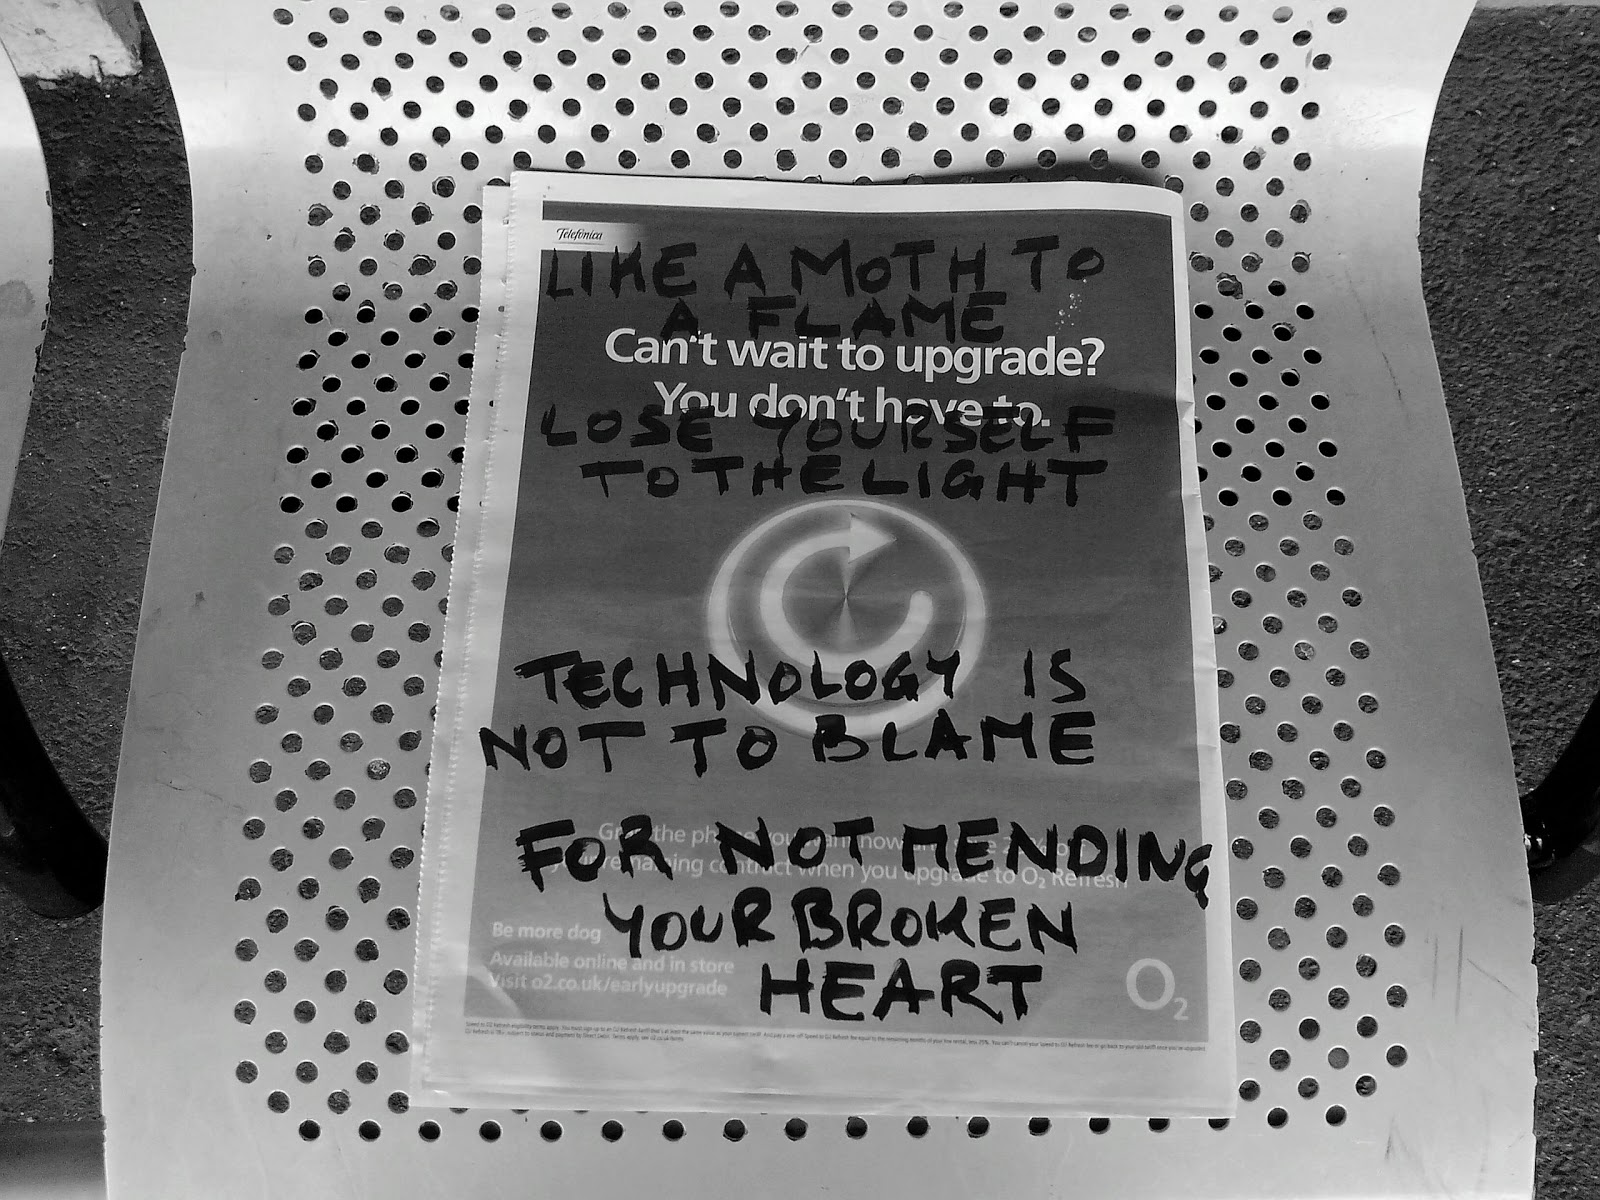 Telefónica
LIKE A MOTH TO
A FLAME
Can't wait to upgrade?
You don't have to.
LOSE YOURSELF
TO THE LIGHT
TECHNOLOGY IS
NOT TO BLAME
the phone you want now
FOR NOT MENDING
remaining contract when you upgrade to O2 Refresh
YOUR BROKEN
Be more dog
Available online and in store
HEART
Visit o2.co.uk/earlyupgrade
O2